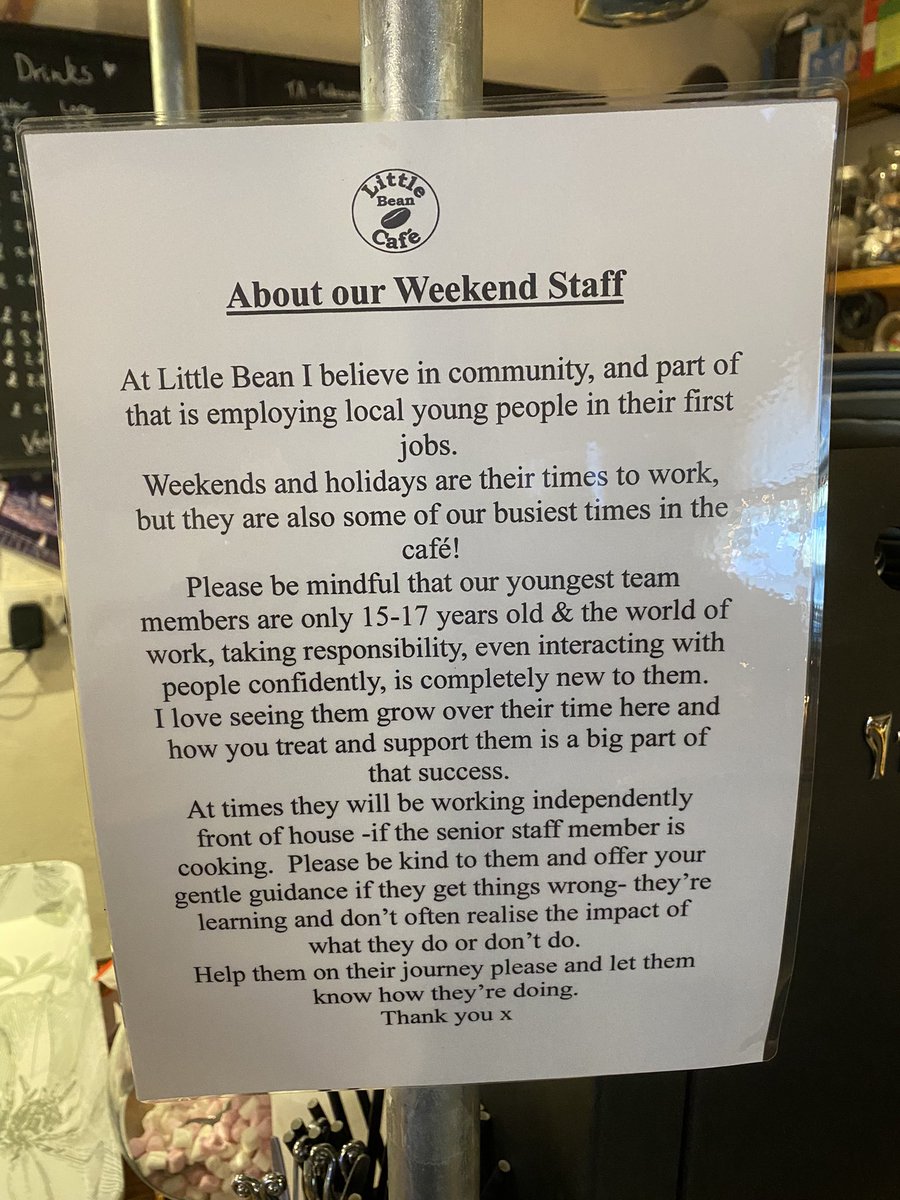 Drinks
Little
Bean
Café
About our Weekend Staff
At Little Bean I believe in community, and part of
that is employing local young people in their first
jobs.
Weekends and holidays are their times to work,
but they are also some of our busiest times in the
café!
Please be mindful that our youngest team
members are only 15-17 years old & the world of
work, taking responsibility, even interacting with
people confidently, is completely new to them.
I love seeing them grow over their time here and
how you treat and support them is a big part of
that success.
At times they will be working independently
front of house -if the senior staff member is
cooking.  Please be kind to them and offer your
gentle guidance if they get things wrong- they’re
learning and don’t often realise the impact of
what they do or don’t do.
Help them on their journey please and let them
know how they’re doing.
Thank you x